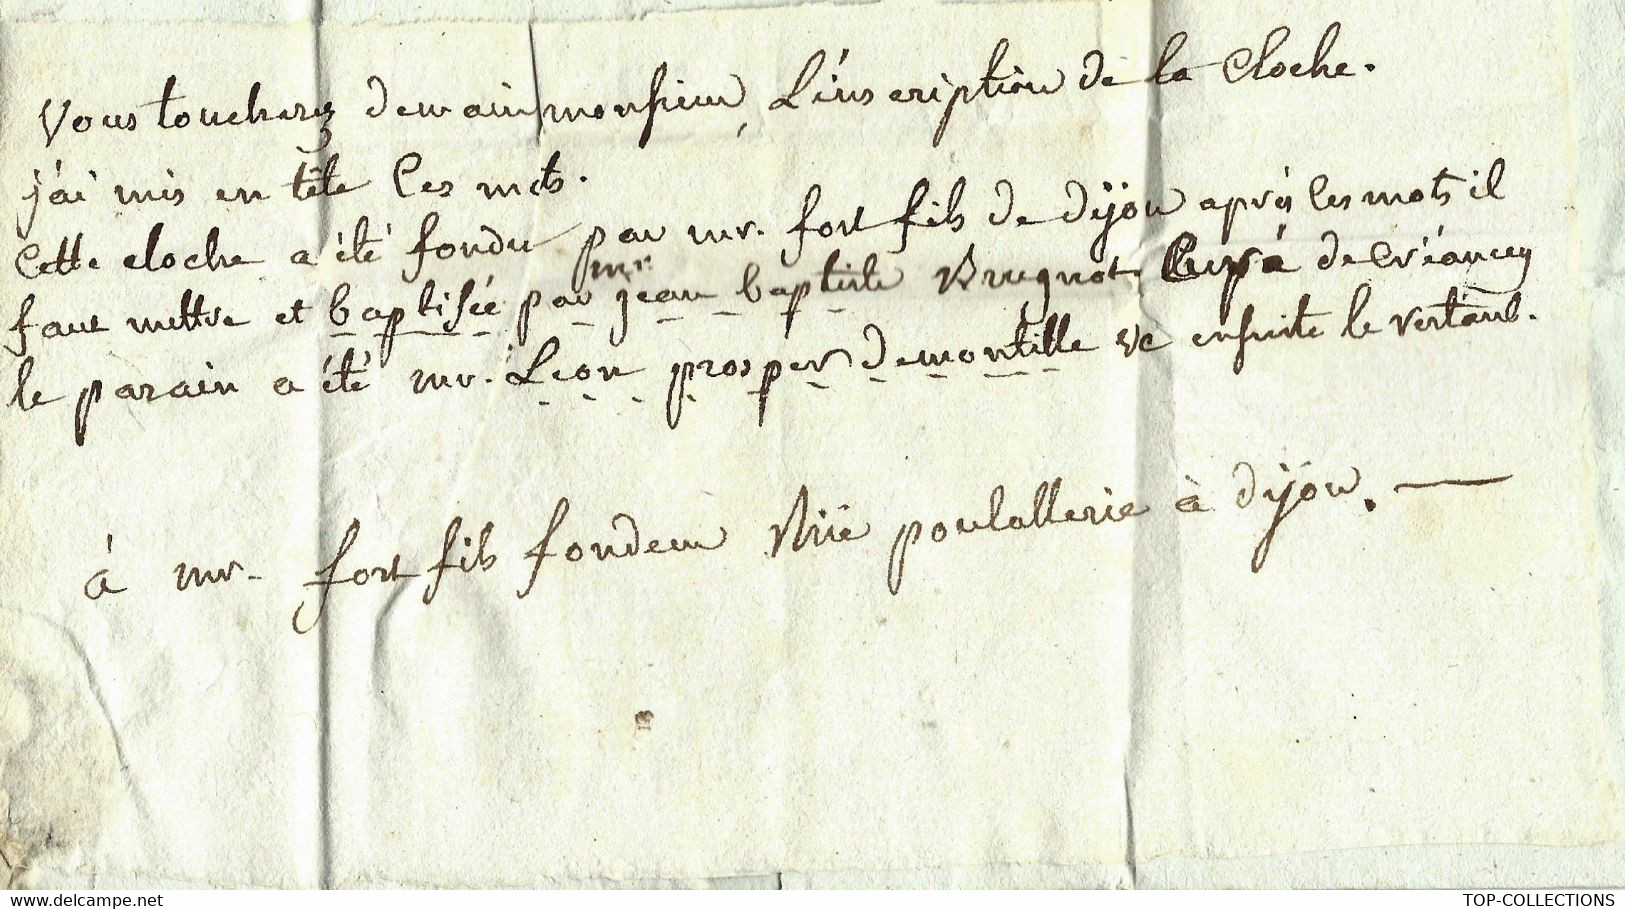 Vous toucherez demain monsieur, L'inscription de la Cloche.
j'ai mis en tête Ces mots.
Cette cloche a été fondu par mr. fort fils de dijon après les mots il
faut mettre et baptisée par mr jean baptiste Brugnot Curé de Créancey
le parain a été mr. Léon prosper demontille &c ensuite le restant.
à mr. fort fils fondeur Rüe poulallerie à dijon.
(c) delcampe.net
TOP-COLLECTIONS